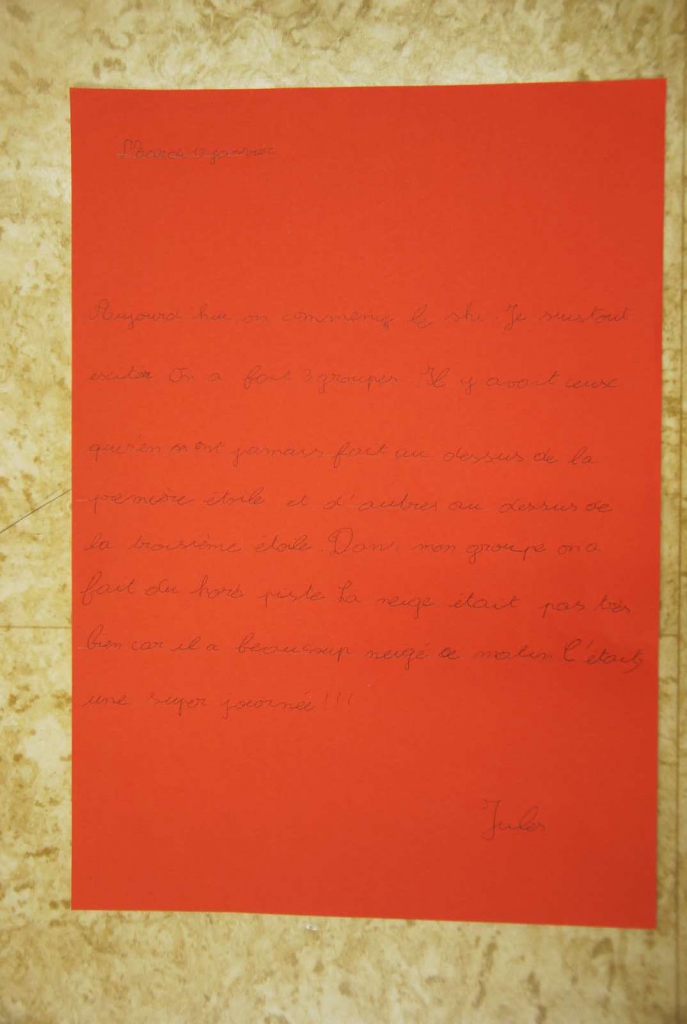 Mardi 12 janvier
Aujourd'hui on commence le ski. Je suis tout
exité. On a fait 3 groupes. Il y avait ceux
qui n'en ont jamais fait un dessus de la
première étoile et d'autres au dessus de
la troisième étoile. Dans mon groupe on a
fait du hors piste la neige était pas très
bien car il a beaucoup neigé ce matin C'était
une super journée!!!
Jules